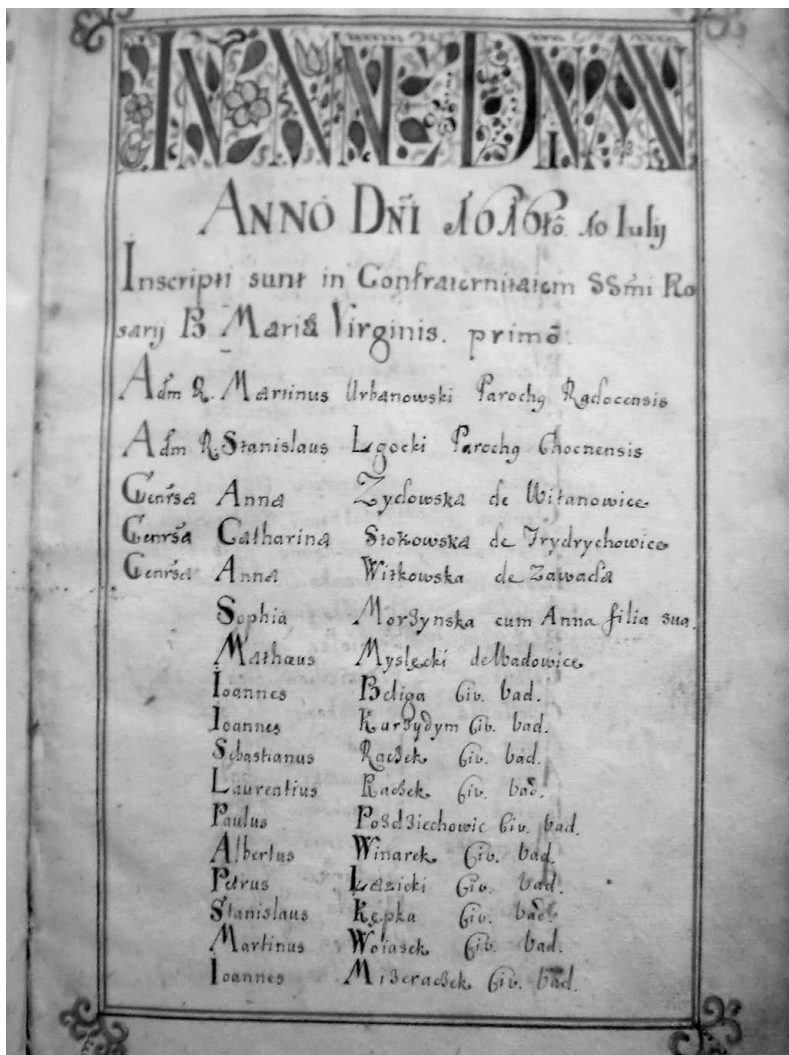 IN NNE DNI AMN
ANNO DÑI 1616tô 10 Iulij
Inscripti sunt in Confraternitatem SSmi Ro
sarij B. Mariæ Virginis. primô.
Adm R. Martinus Urbanowski Parochq Radocensis
Adm R. Stanislaus Lgocki Parochq Chocnensis
Genrsa Anna Zydowska de Witanowice
Genrsa Catharina Stokowska de Frydrychowice
Genrsa Anna Witkowska de Zawada
Sophia Morzynska cum Anna filia sua.
Mathæus Myslęcki de Wadowice
Ioannes Beliga Civ. Vad.
Ioannes Kurzydym Civ. Vad.
Sebastianus Raczek Civ. Vad.
Laurentius Raczek Civ. Vad.
Paulus Pozdziechowic Civ. Vad.
Albertus Winarek Civ. Vad.
Petrus Łazicki Civ. Vad.
Stanislaus Kępka Civ. Vad.
Martinus Woiasek Civ. Vad.
Ioannes Mizeraczek Civ. Vad.